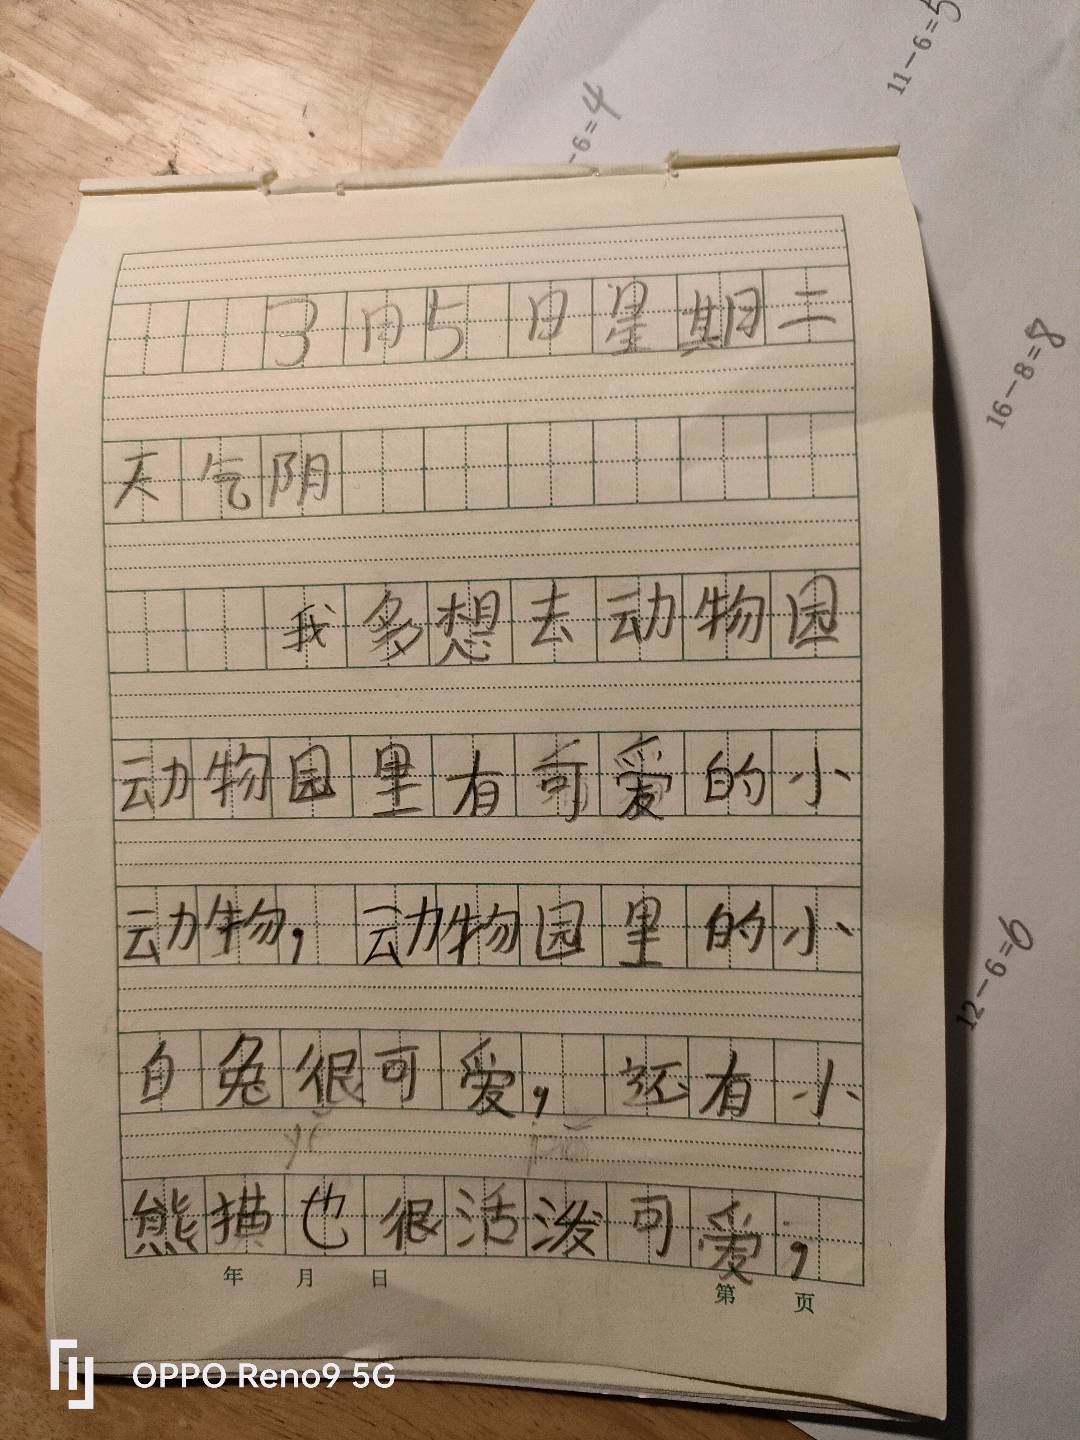 11-6=5
-6=4
3月5日星期二
天气阴
我多想去动物园
动物园里有可爱的小
动物，动物园里的小
白兔很可爱，还有小
yě
pō
熊猫也很活泼可爱，
年 月 日
第 页
16-8=8
12-6=6
OPPO Reno9 5G